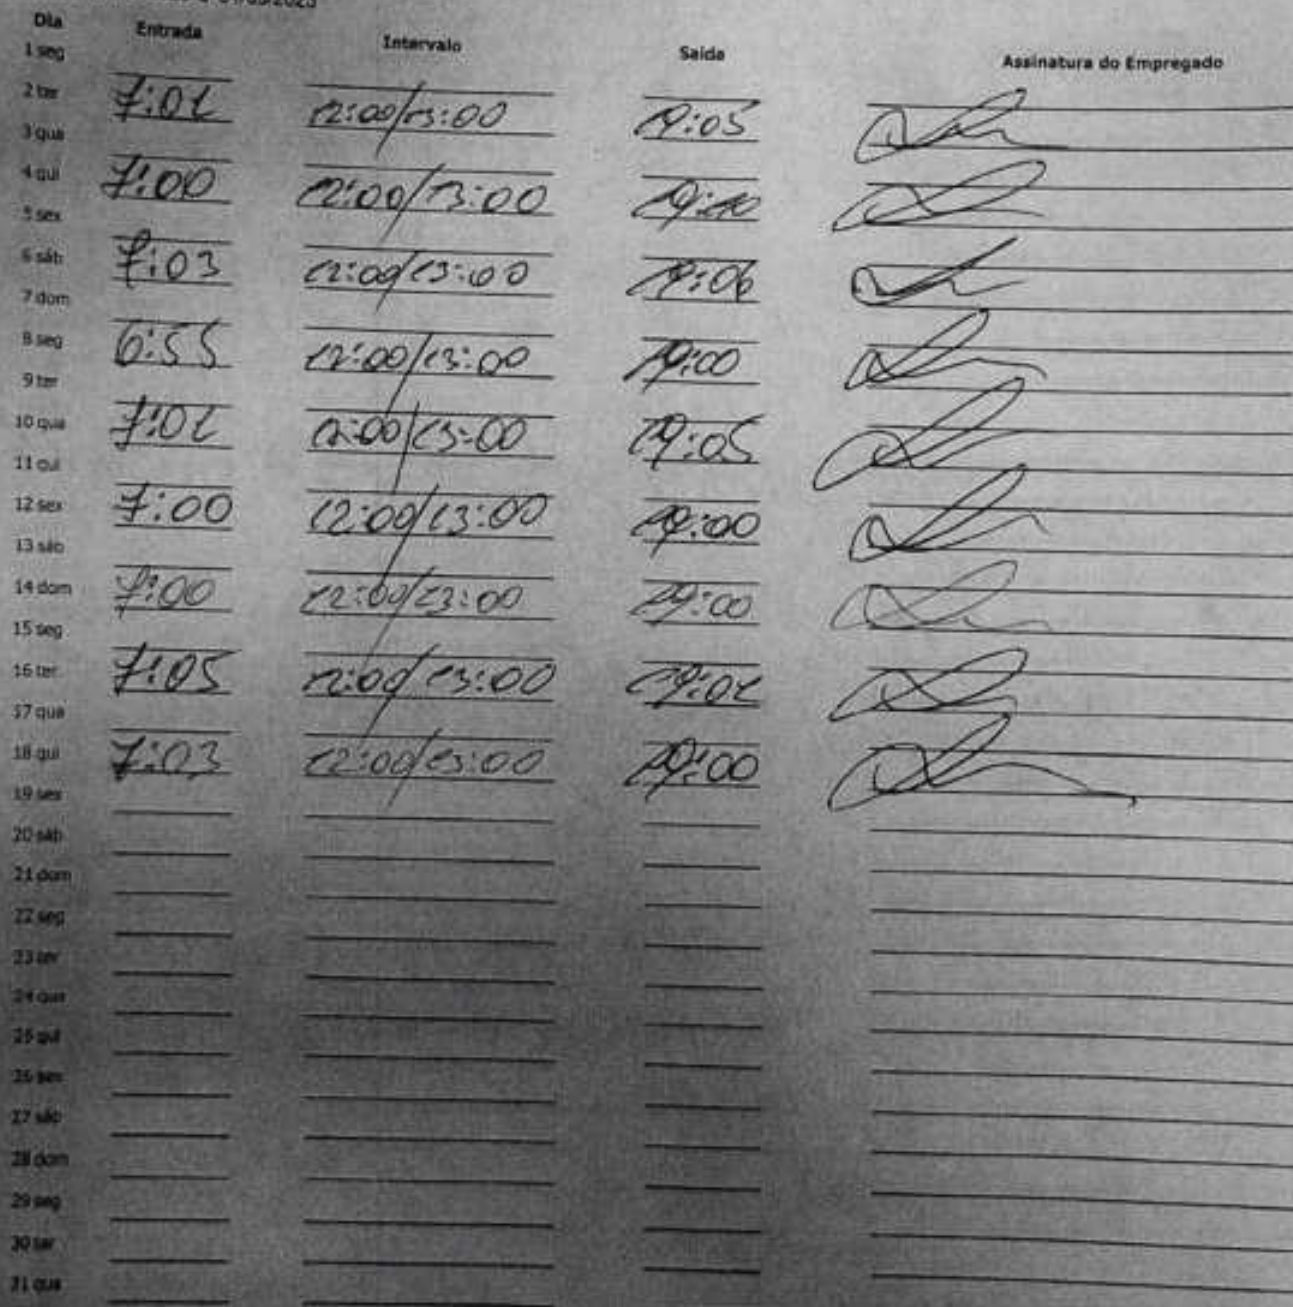 /05/2023
Dia Entrada Intervalo Saída Assinatura do Empregado
1 seg
2 ter 7:01 12:00/13:00 19:05
3 qua
4 qui 7:00 12:00/13:00 19:10
5 sex
6 sáb 7:03 12:00/13:00 19:06
7 dom
8 seg 6:55 12:00/13:00 19:00
9 ter
10 qua 7:01 12:00/13:00 19:05
11 qui
12 sex 7:00 12:00/13:00 19:00
13 sáb
14 dom 7:00 12:00/13:00 19:00
15 seg
16 ter 7:05 12:00/13:00 19:01
17 qua
18 qui 7:03 12:00/13:00 19:00
19 sex
20 sáb
21 dom
22 seg
23 ter
24 qua
25 qui
26 sex
27 sáb
28 dom
29 seg
30 ter
31 qua